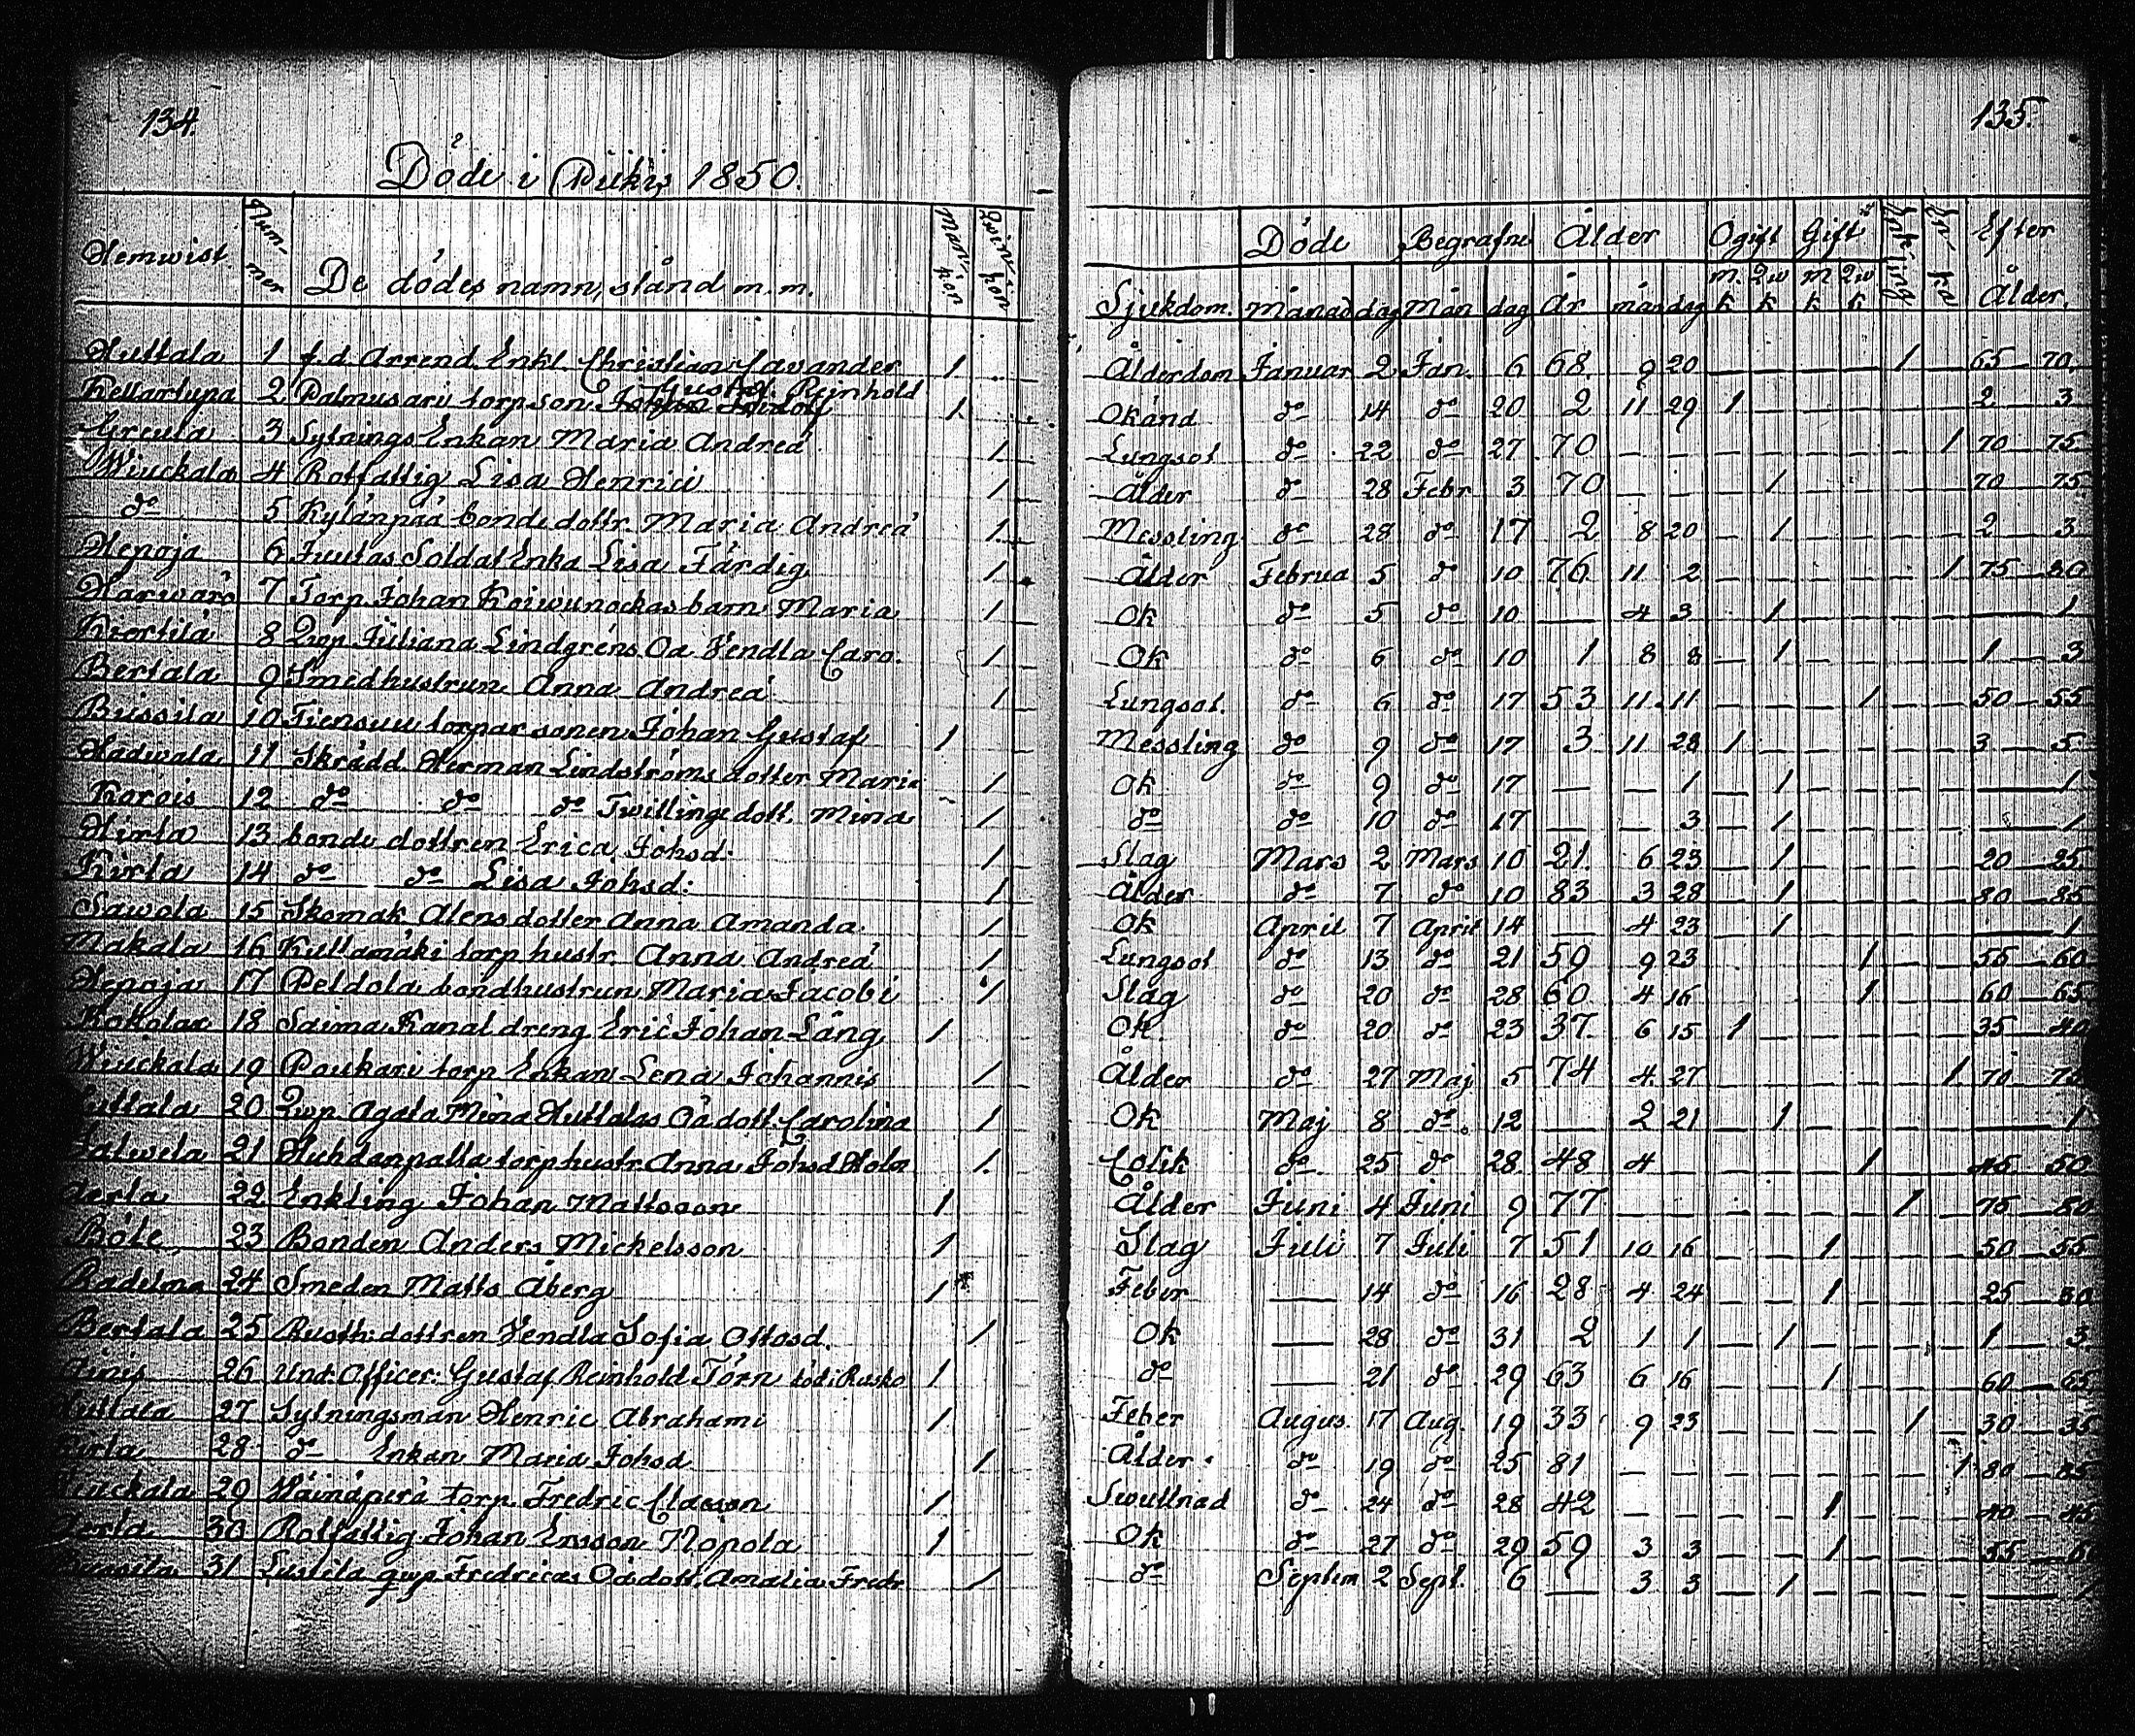 134.
135.
Döde i Pikis 1850.
Hemwist Num-mer De dödes namn, stånd m. m. Mankön Qwinkön Sjukdom. Döde Månad dag Begrafne Mån dag Ålder År mån dag Ogift m. k Qw k Gift m k Qw k Enkling Enka Efter Ålder.
Huttala 1 f.d. Arrend. Enkl. Christian Cavander 1 Ålderdom Januar 2 Jan. 6 68 9 20 1 65 70
Kellartupa 2 Palmusari torpson Gustaf Reinhold 1 Okänd do 14 do 20 2 11 29 1 2 3
Greula 3 Sytnings Enkan Maria Andreä 1 Lungsot do 22 do 27 70 1 70 75
Wiuckala 4 Rotfattig Lisa Henrici 1 Ålder do 28 Febr 3 70 1 70 75
do 5 Kylänpää bondedottr. Maria Andreä 1 Messling do 28 do 17 2 8 20 1 2 3
Hepoja 6 Juutas Soldat Enka Lisa Färdig 1 Ålder Februa 5 do 10 76 11 2 1 75 80
Harwarö 7 Torp. Johan Koiwunockas barn Maria 1 Ok do 5 do 10 4 3 1 1
Kiertilä 8 Qwp Juliana Lindgréns Oä Vendla Caro. 1 Ok do 6 do 10 1 8 8 1 1 3
Bertala 9 Smedhustrun Anna Andreä 1 Lungsot. do 6 do 17 53 11 11 1 50 55
Bussila 10 Tiensuu torparsonen Johan Gustaf 1 Messling do 9 do 17 3 11 28 1 3 5
Hadwala 11 Skrädd. Herman Lindströms dotter Maria 1 Ok do 9 do 17 1 1 1
Korois 12 do do do Twillingedott. Mina 1 do do 10 do 17 3 1 1
Hirla 13 bonde dottren Erica Johsd: 1 Slag Mars 2 Mars 10 21 6 23 1 20 25
Kirla 14 do do Lisa Johsd: 1 Ålder do 7 do 10 83 3 28 1 80 85
Sawola 15 Skomak. Alens dotter Anna Amanda 1 Ok April 7 April 14 4 23 1 1
Makala 16 Kullamäki torp hustr. Anna Andreä 1 Lungsot do 13 do 21 59 9 23 1 55 60
Hepoja 17 Peldola bondhustrun Maria Jacobi 1 Slag do 20 do 28 60 4 16 1 60 65
Kokolax 18 Saima Kanal dreng Eric Johan Lång 1 Ok. do 20 do 23 37 6 15 1 35 40
Wiuckala 19 Paukari torp Enkan Lena Johannis 1 Ålder do 27 Maj 5 74 4 27 1 70 75
20 Qwp. Agata Mina Huttalas Oä dott. Carolina 1 Ok Maj 8 do 12 2 21 1 1
21 Huhdanpalta torphustr. Anna Johsd Holm 1 Colik do 25 do 28 48 4 1 45 50
22 Enkling Johan Mattsson 1 Ålder Juni 4 Juni 9 77 1 75 80
Böle 23 Bonden Anders Mickelsson 1 Slag Juli 7 Juli 7 51 10 16 1 50 55
Radelma 24 Smeden Matts Åberg 1 Feber 14 do 16 28 4 24 1 25 30
Bertala 25 Rusth: dottren Vendla Sofia Ottosd. 1 Ok 28 do 31 2 1 1 1 1 3
26 Und: Officer: Gustaf Reinhold Törn död i Rusko 1 do 21 do 29 63 6 16 1 60 65
Huttala 27 Sytningsman Henric Abrahami 1 Feber Augus. 17 Aug. 19 33 9 23 1 30 35
28 do Enkan Maria Johsd 1 Ålder do 19 do 25 81 1 80 85
Wiuckala 29 Häinäperä torp. Fredric Classon 1 Swullnad do 24 do 28 42 1 40 45
30 Rotfattig Johan Ersson Nopola 1 Ok do 27 do 29 59 3 3 1 55
31 Lustila qwp Fredricas Oä dott. Amalia Fredr 1 do Septem 2 Sept. 6 3 3 1 1